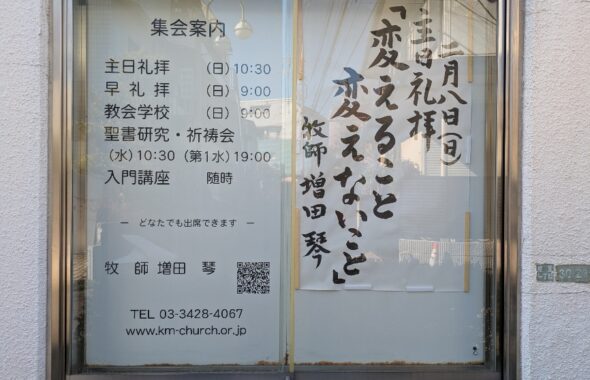 集会案内
主日礼拝 (日) 10:30
早礼拝 (日) 9:00
教会学校 (日) 9:00
聖書研究・祈祷会
(水) 10:30 (第1水) 19:00
入門講座 随時
― どなたでも出席できます ―
牧師 増田 琴
TEL 03-3428-4067
www.km-church.or.jp
二月八日(日)
主日礼拝
「変えること
変えないこと」
牧師 増田 琴